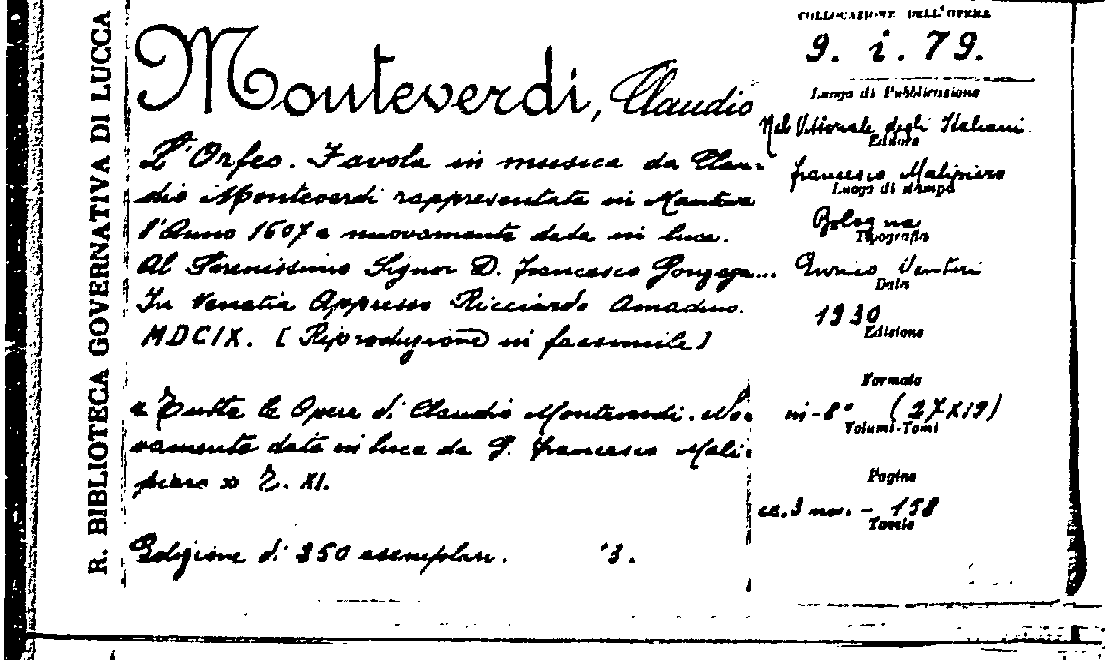 R. BIBLIOTECA GOVERNATIVA DI LUCCA
Monteverdi, Claudio
L'Orfeo. Favola in musica da Clau-
dio Monteverdi rappresentata in Mantova
l'Anno 1607 e nuovamente data in luce.
Al Serenissimo Signor D. Francesco Gonzaga...
In Venetia Appresso Ricciardo Amadino.
MDCIX. [Riproduzione in facsimile]
« Tutte le Opere di Claudio Monteverdi. Nuo-
vamente date in luce da G. Francesco Mali-
piero » T. XI.
Edizione di 250 esemplari.
COLLOCAZIONE DELL'OPERA
9. i. 79.
Luogo di Pubblicazione
Nel Vittoriale degli Italiani
Editore
Francesco Malipiero
Luogo di stampa
Bologna
Tipografia
Ennio Venturi
Data
1930
Edizione
Formato
in-8° (27x19)
Volumi-Tomi
Pagine
cc. 3 nn. - 158
Tavole